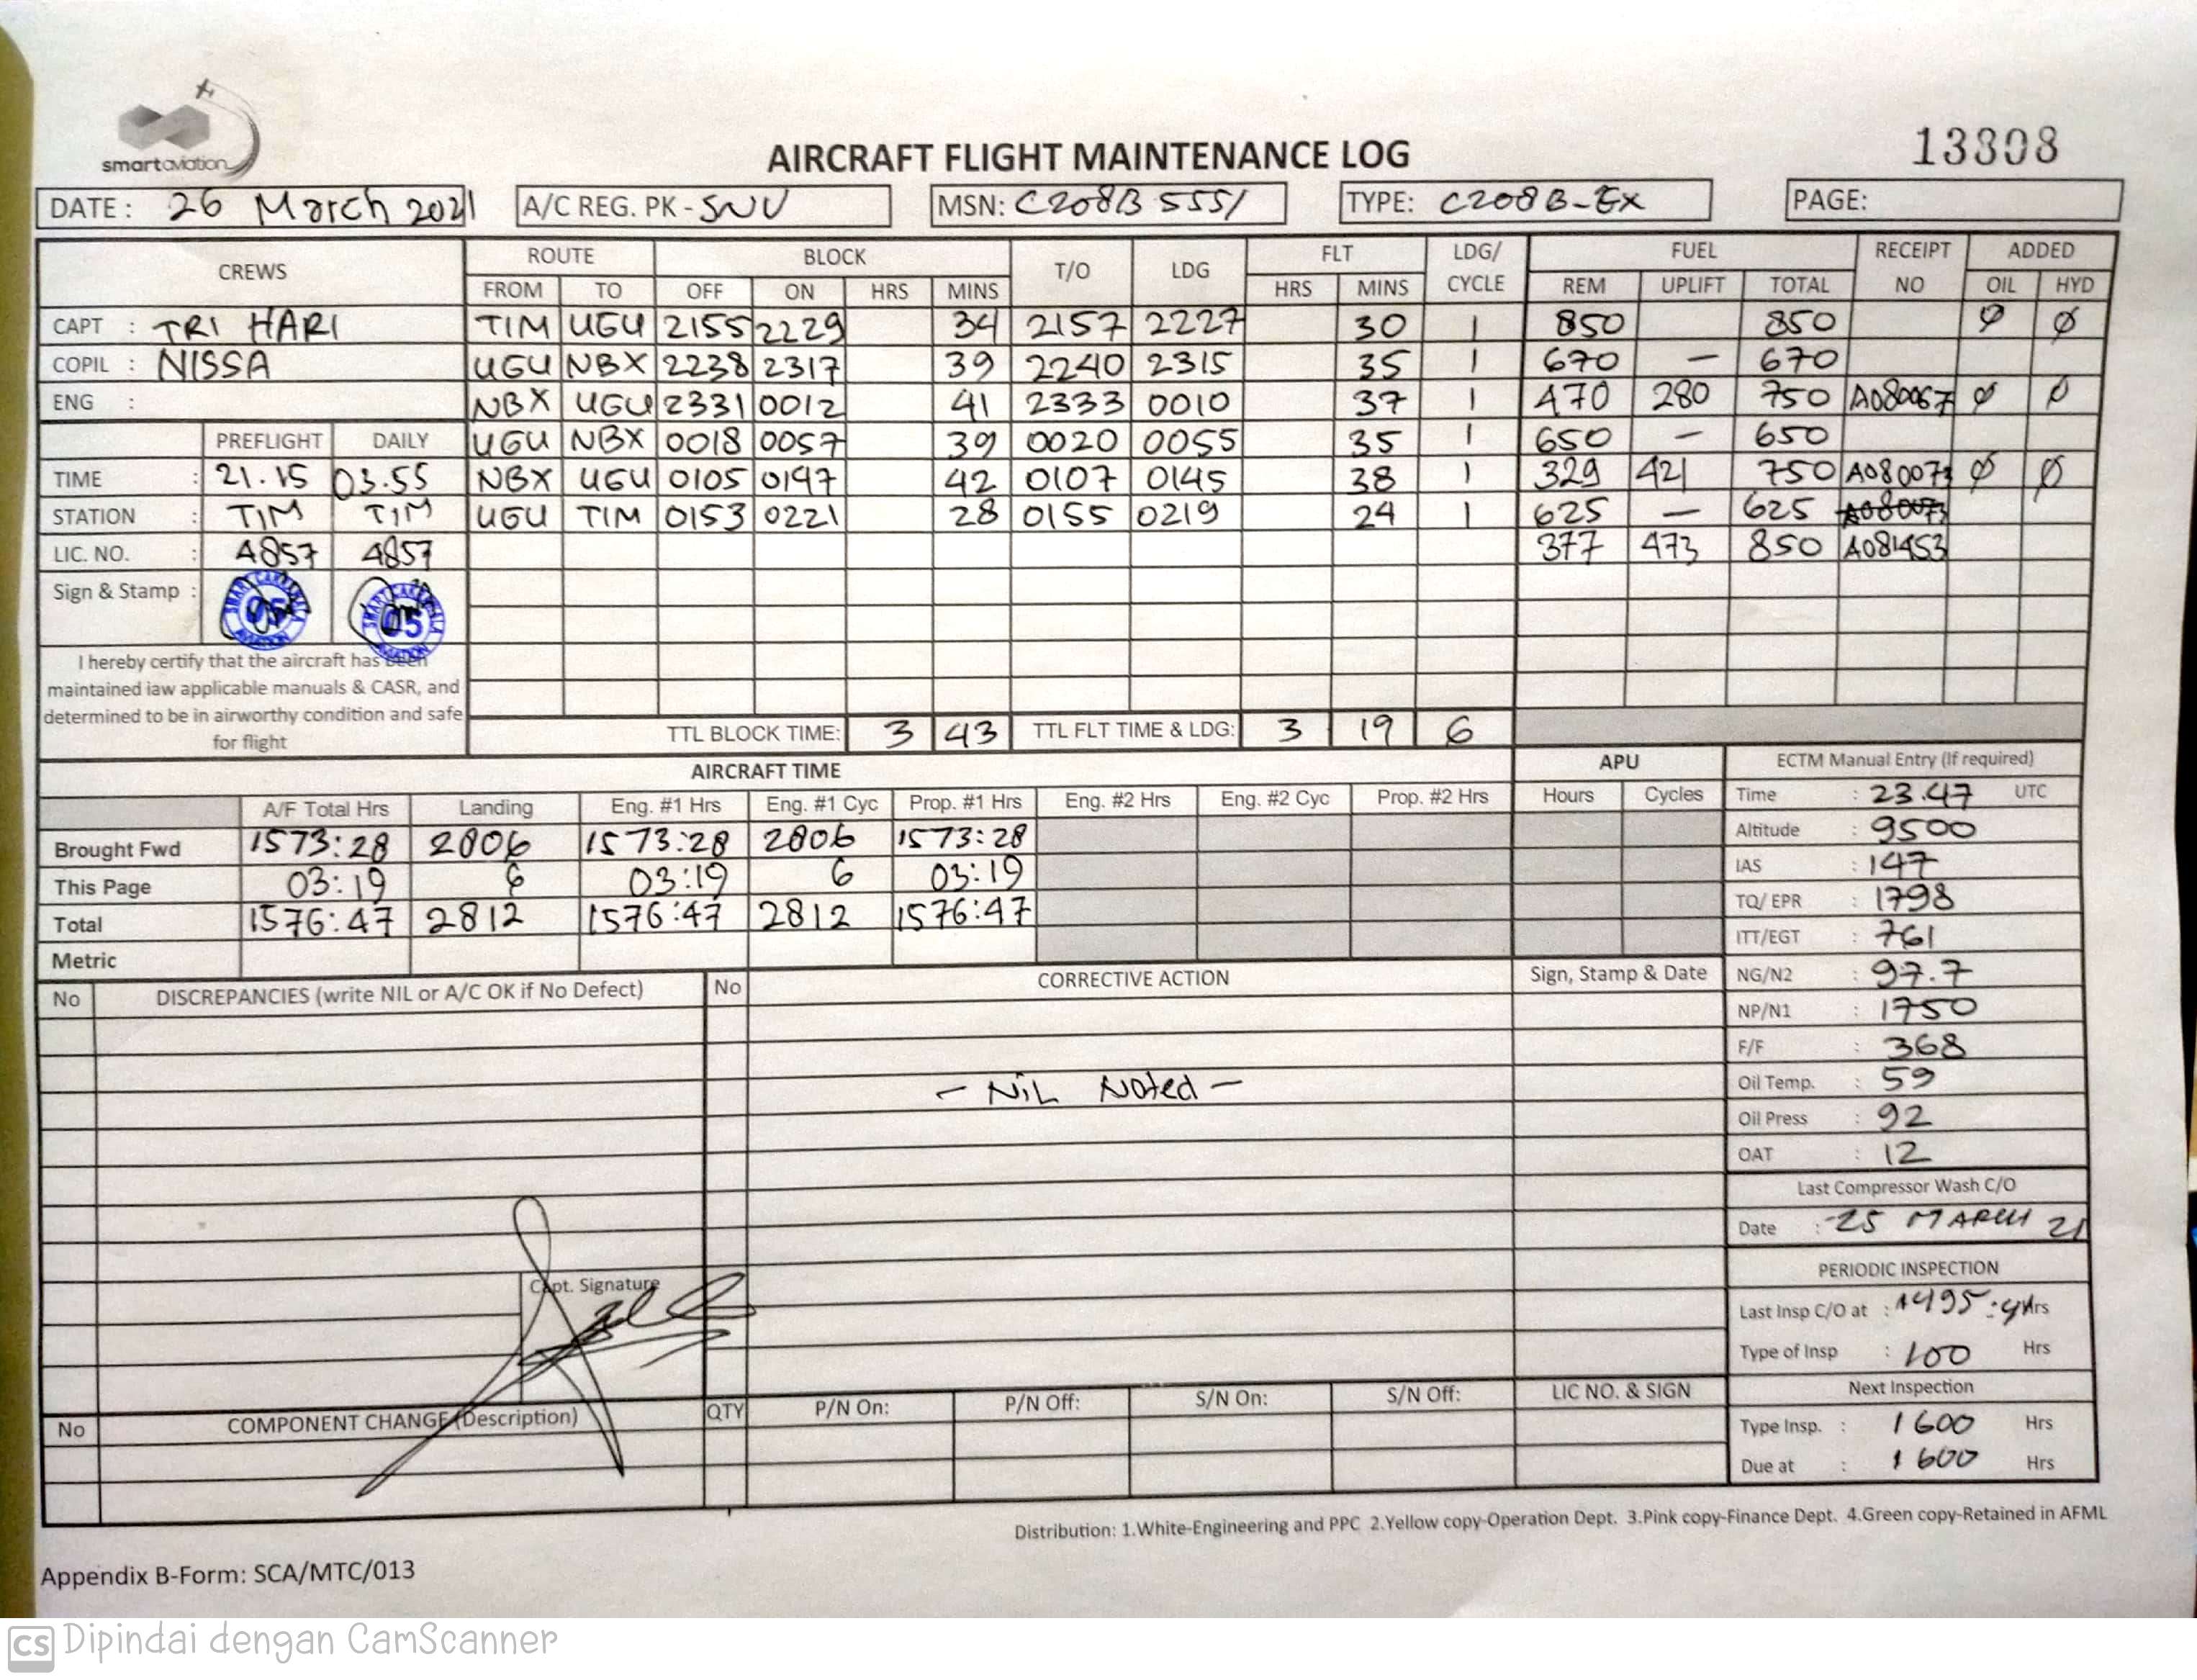 smartaviation
AIRCRAFT FLIGHT MAINTENANCE LOG
13308
DATE : 26 March 2021 A/C REG. PK - SNU MSN: C208B 5551 TYPE: C208B-EX PAGE:
CREWS ROUTE BLOCK T/O LDG FLT LDG/ CYCLE FUEL RECEIPT NO ADDED
FROM TO OFF ON HRS MINS HRS MINS REM UPLIFT TOTAL OIL HYD
CAPT : TRI HARI TIM UGU 2155 2229 34 2157 2227 30 1 850 850 Ø Ø
COPIL : NISSA UGU NBX 2238 2317 39 2240 2315 35 1 670 — 670
ENG : NBX UGU 2331 0012 41 2333 0010 37 1 470 280 750 A080067 Ø Ø
PREFLIGHT DAILY UGU NBX 0018 0057 39 0020 0055 35 1 650 — 650
TIME : 21.15 03.55 NBX UGU 0105 0147 42 0107 0145 38 1 329 421 750 A080073 Ø Ø
STATION : TIM TIM UGU TIM 0153 0221 28 0155 0219 24 1 625 — 625 A080073
LIC. NO. : 4857 4857 377 473 850 A081453
Sign & Stamp :
I hereby certify that the aircraft has been
maintained iaw applicable manuals & CASR, and
determined to be in airworthy condition and safe
for flight
TTL BLOCK TIME: 3 43 TTL FLT TIME & LDG: 3 19 6
AIRCRAFT TIME APU ECTM Manual Entry (If required)
A/F Total Hrs Landing Eng. #1 Hrs Eng. #1 Cyc Prop. #1 Hrs Eng. #2 Hrs Eng. #2 Cyc Prop. #2 Hrs Hours Cycles Time : 23.47 UTC
Brought Fwd 1573:28 2806 1573:28 2806 1573:28 Altitude : 9500
This Page 03:19 6 03:19 6 03:19 IAS : 147
Total 1576:47 2812 1576:47 2812 1576:47 TQ/ EPR : 1798
Metric ITT/EGT : 761
No DISCREPANCIES (write NIL or A/C OK if No Defect) No CORRECTIVE ACTION Sign, Stamp & Date NG/N2 : 97.7
NP/N1 : 1750
F/F : 368
— NiL Noted — Oil Temp. : 59
Oil Press : 92
OAT : 12
Last Compressor Wash C/O
Date : 25 MARCH 21
PERIODIC INSPECTION
Capt. Signature
Last Insp C/O at : Hrs
Type of Insp : 100 Hrs
Next Inspection
No COMPONENT CHANGE (Description) QTY P/N On: P/N Off: S/N On: S/N Off: LIC NO. & SIGN
Type Insp. : 1600 Hrs
Due at : 1600 Hrs
Distribution: 1.White-Engineering and PPC 2.Yellow copy-Operation Dept. 3.Pink copy-Finance Dept. 4.Green copy-Retained in AFML
Appendix B-Form: SCA/MTC/013
CS Dipindai dengan CamScanner